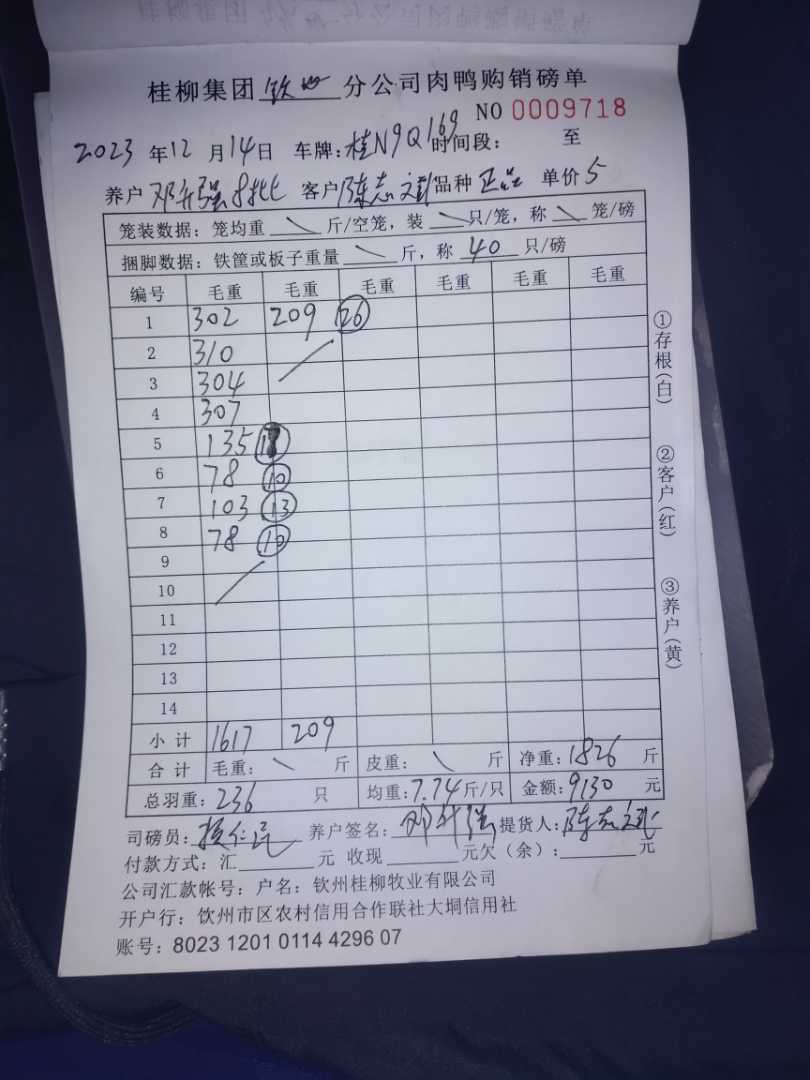 桂柳集团 钦州 分公司肉鸭购销磅单
NO 0009718
2023 年 12 月 14 日 车牌: 桂N9Q169 时间段: 至
养户 邓升强8批 客户 陈志斌 品种 正品 单价 5
笼装数据: 笼均重 \ 斤/空笼, 装 \ 只/笼, 称 \ 笼/磅
捆脚数据: 铁筐或板子重量 \ 斤, 称 40 只/磅
编号 毛重 毛重 毛重 毛重 毛重 毛重
1 302 209 26
2 310
3 304
4 307
5 135
6 78 10
7 103 13
8 78 10
9
10
11
12
13
14
小计 1617 209
合计 毛重: \ 斤 皮重: \ 斤 净重: 1826 斤
总羽重: 236 只 均重: 7.74 斤/只 金额: 9130 元
司磅员: 养户签名: 邓升强 提货人: 陈志斌
付款方式: 汇 元 收现 元欠(余): 元
公司汇款帐号: 户名: 钦州桂柳牧业有限公司
开户行: 饮州市区农村信用合作联社大垌信用社
账号: 8023 1201 0114 4296 07
①存根(白)
②客户(红)
③养户(黄)